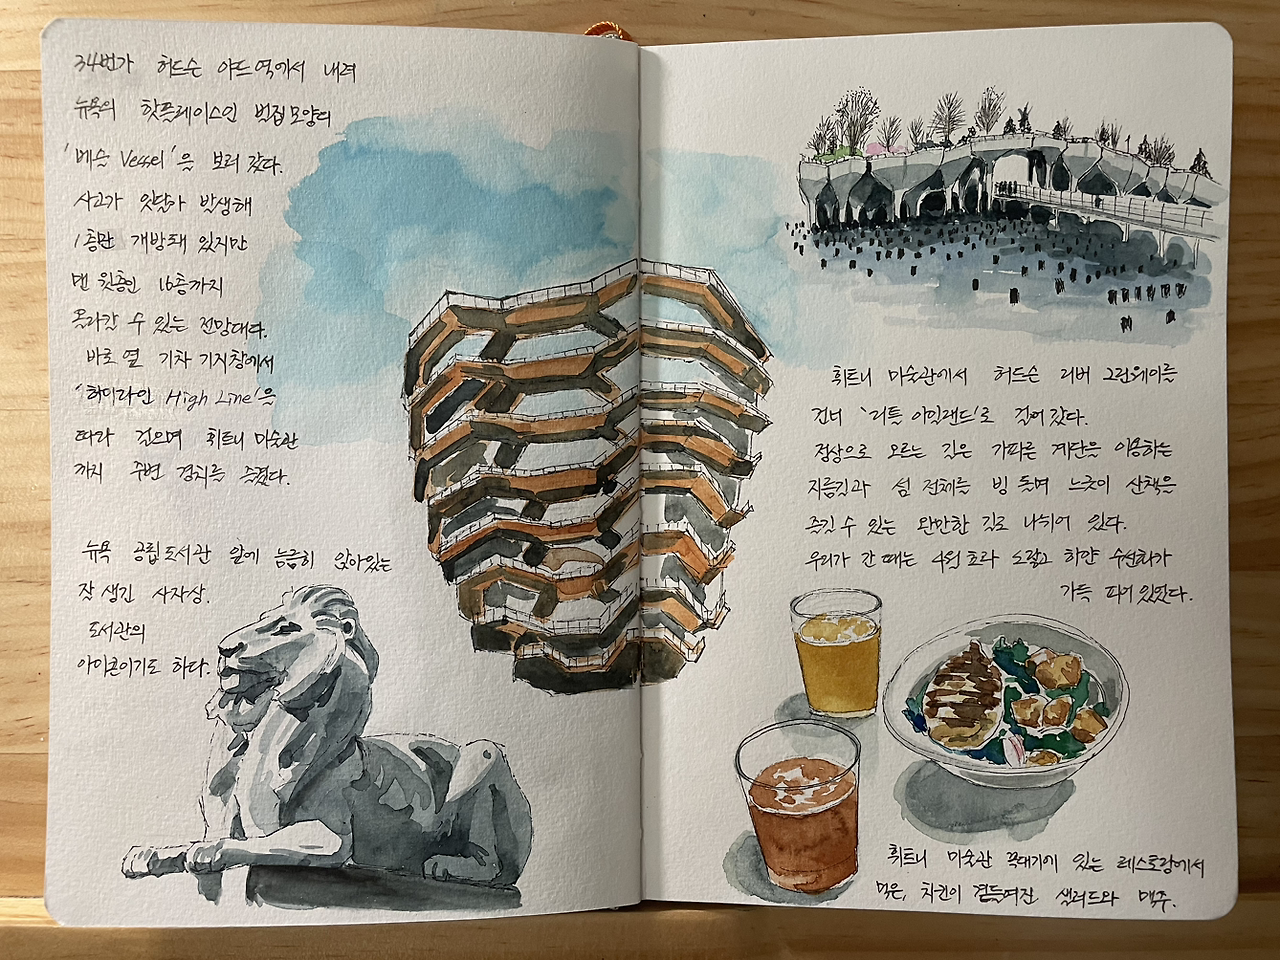 34번가 허드슨 야드역에서 내려
뉴욕의 핫플레이스인 벌집모양의
'베슬 Vessel'을 보러 갔다.
사고가 잇달아 발생해
1층만 개방돼 있지만
맨 윗층인 16층까지
올라갈 수 있는 전망대다.
바로 옆 기차 기지창에서
'하이라인 High Line'을
따라 걸으며 휘트니 미술관
까지 주변 경치를 즐겼다.
뉴욕 공립도서관 앞에 늠름히 앉아있는
잘 생긴 사자상.
도서관의
아이콘이기도 하다.
휘트니 미술관에서 허드슨 리버 그린웨이를
건너 '리틀 아일랜드'로 걸어갔다.
정상으로 오르는 길은 가파른 계단을 이용하는
지름길과 섬 전체를 빙 돌며 느긋이 산책을
즐길 수 있는 완만한 길로 나뉘어 있다.
우리가 간 때는 4월 초라 노랗고 하얀 수선화가
가득 피어있었다.
휘트니 미술관 꼭대기에 있는 레스토랑에서
먹은, 치킨이 곁들여진 샐러드와 맥주.